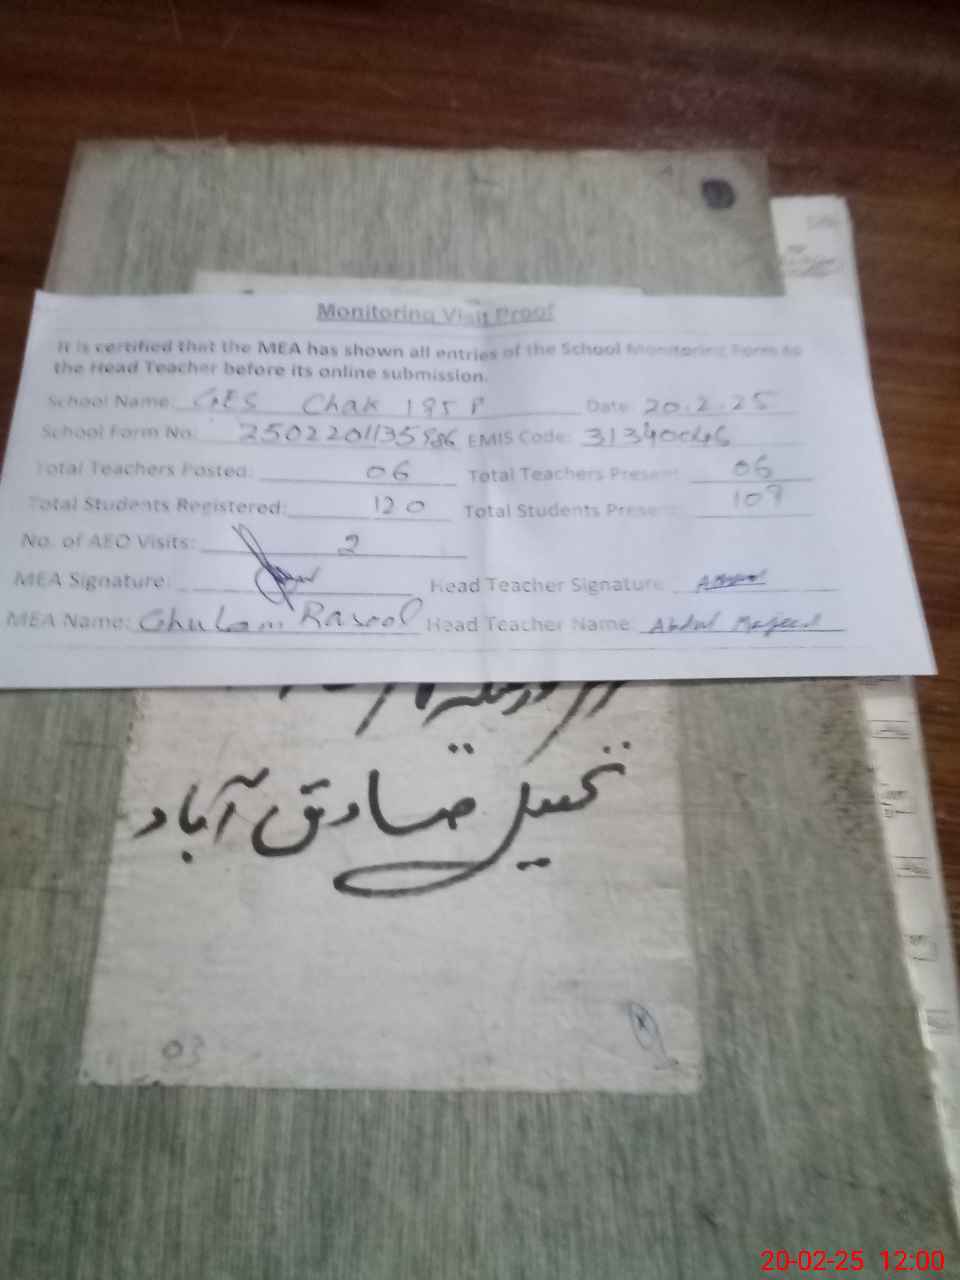 Monitoring Visit Proof
It is certified that the MEA has shown all entries of the School Monitoring Form to
the Head Teacher before its online submission.
School Name: GES Chak 195 P Date 20.2.25
School Form No: 2502201135986 EMIS Code: 31340046
Total Teachers Posted: 06 Total Teachers Present: 06
Total Students Registered: 120 Total Students Present: 109
No. of AEO Visits: 2
MEA Signature: Head Teacher Signature
MEA Name: Ghulam Rasool Head Teacher Name: Abdul Majeed
تحصیل صادق آباد
03
20-02-25 12:00